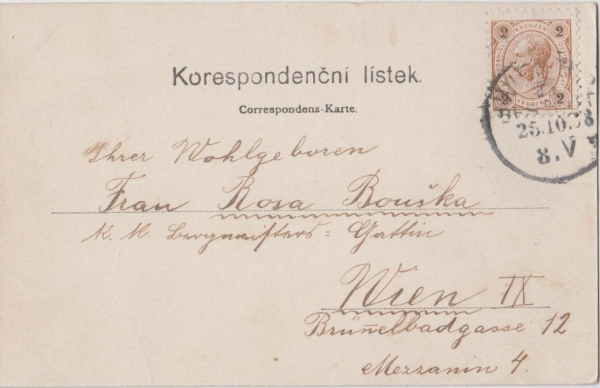 2 KREUZER 2
2 2
Korespondenční lístek.
Correspondenz-Karte.
25.10.98
8.V
Ihrer Wohlgeboren
Frau Rosa Bouška
k. k. Bergmeisters-Gattin
Wien IX
Brünnelbadgasse 12
Mezzanin 4.